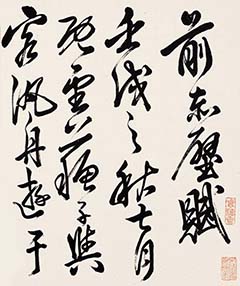 前赤壁賦
壬戌之秋七月
既望蘇子與
客汎舟遊于